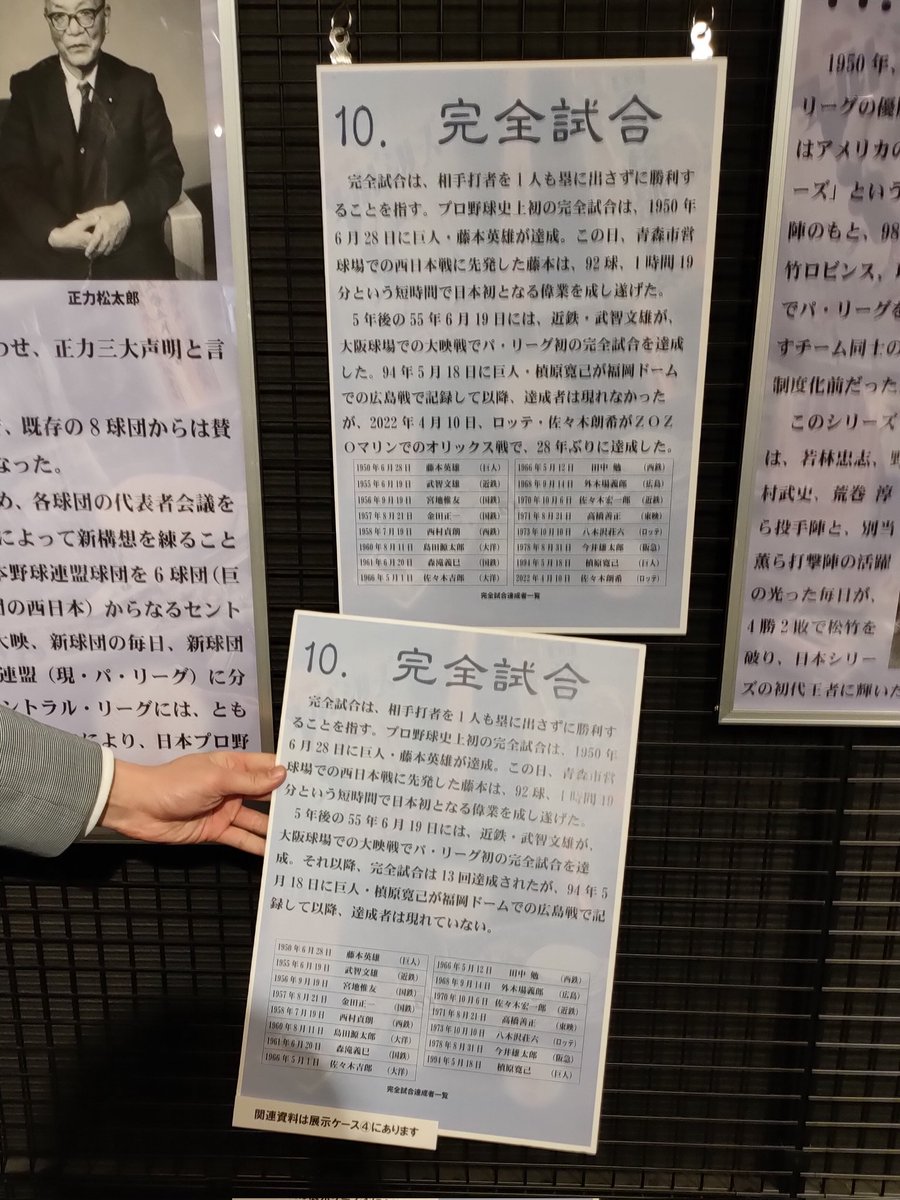 正力松太郎
わせ、正力三大声明と言
、既存の8球団からは賛
なった。
め、各球団の代表者会議を
によって新構想を練ること
本野球連盟球団を6球団（巨
団の西日本）からなるセント
大映、新球団の毎日、新球団
連盟（現・パ・リーグ）に分
ントラル・リーグには、とも
により、日本プロ野
10. 完全試合
完全試合は、相手打者を1人も塁に出さずに勝利す
ることを指す。プロ野球史上初の完全試合は、1950年
6月28日に巨人・藤本英雄が達成。この日、青森市営
球場での西日本戦に先発した藤本は、92球、1時間19
分という短時間で日本初となる偉業を成し遂げた。
5年後の55年6月19日には、近鉄・武智文雄が、
大阪球場での大映戦でパ・リーグ初の完全試合を達成
した。94年5月18日に巨人・槙原寛己が福岡ドーム
での広島戦で記録して以降、達成者は現れなかった
が、2022年4月10日、ロッテ・佐々木朗希がＺＯＺ
Ｏマリンでのオリックス戦で、28年ぶりに達成した。
1950年6月28日 藤本英雄 （巨人）
1955年6月19日 武智文雄 （近鉄）
1956年9月19日 宮地惟友 （国鉄）
1957年8月21日 金田正一 （国鉄）
1958年7月19日 西村貞朗 （西鉄）
1960年8月11日 島田源太郎 （大洋）
1961年6月20日 森滝義巳 （国鉄）
1966年5月1日 佐々木吉郎 （大洋）
1966年5月12日 田中 勉 （西鉄）
1968年9月14日 外木場義郎 （広島）
1970年10月6日 佐々木宏一郎 （近鉄）
1971年8月21日 高橋善正 （東映）
1973年10月10日 八木沢荘六 （ロッテ）
1978年8月31日 今井雄太郎 （阪急）
1994年5月18日 槙原寛己 （巨人）
2022年4月10日 佐々木朗希 （ロッテ）
完全試合達成者一覧
10. 完全試合
完全試合は、相手打者を1人も塁に出さずに勝利す
ることを指す。プロ野球史上初の完全試合は、1950年
6月28日に巨人・藤本英雄が達成。この日、青森市営
球場での西日本戦に先発した藤本は、92球、1時間19
分という短時間で日本初となる偉業を成し遂げた。
5年後の55年6月19日には、近鉄・武智文雄が、
大阪球場での大映戦でパ・リーグ初の完全試合を達
成。それ以降、完全試合は13回達成されたが、94年5
月18日に巨人・槙原寛己が福岡ドームでの広島戦で記
録して以降、達成者は現れていない。
1950年6月28日 藤本英雄 （巨人）
1955年6月19日 武智文雄 （近鉄）
1956年9月19日 宮地惟友 （国鉄）
1957年8月21日 金田正一 （国鉄）
1958年7月19日 西村貞朗 （西鉄）
1960年8月11日 島田源太郎 （大洋）
1961年6月20日 森滝義巳 （国鉄）
1966年5月1日 佐々木吉郎 （大洋）
1966年5月12日 田中 勉 （西鉄）
1968年9月14日 外木場義郎 （広島）
1970年10月6日 佐々木宏一郎 （近鉄）
1971年8月21日 高橋善正 （東映）
1973年10月10日 八木沢荘六 （ロッテ）
1978年8月31日 今井雄太郎 （阪急）
1994年5月18日 槙原寛己 （巨人）
完全試合達成者一覧
関連資料は展示ケース④にあります
1950年、
リーグの優
はアメリカの
ーズ」という
陣のもと、98
竹ロビンス、
でパ・リーグを
すチーム同士の
制度化前だった
このシリーズ
は、若林忠志、野
村武史、荒巻 淳
ら投手陣と、別当
薫ら打撃陣の活躍
の光った毎日が、
4勝2敗で松竹を
破り、日本シリー
ズの初代王者に輝いた